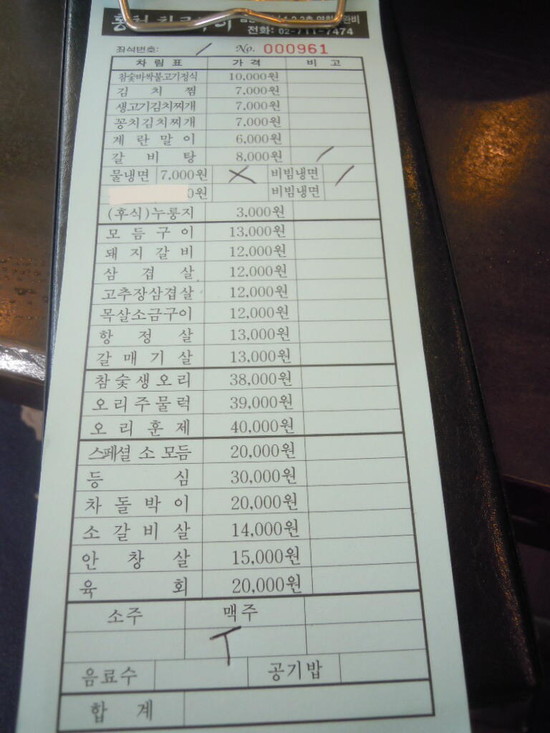 전화: 02-711-7474
좌석번호: / No. 000961
차림표 가격 비고
참숯바싹불고기정식 10,000원
김치찜 7,000원
생고기김치찌개 7,000원
꽁치김치찌개 7,000원
계란말이 6,000원
갈비탕 8,000원 /
물냉면 7,000원 X 비빔냉면 /
0원 비빔냉면
(후식)누룽지 3,000원
모듬구이 13,000원
돼지갈비 12,000원
삼겹살 12,000원
고추장삼겹살 12,000원
목살소금구이 12,000원
항정살 13,000원
갈매기살 13,000원
참숯생오리 38,000원
오리주물럭 39,000원
오리훈제 40,000원
스페셜 소 모듬 20,000원
등심 30,000원
차돌박이 20,000원
소갈비살 14,000원
안창살 15,000원
육회 20,000원
소주 맥주
음료수 공기밥
합계